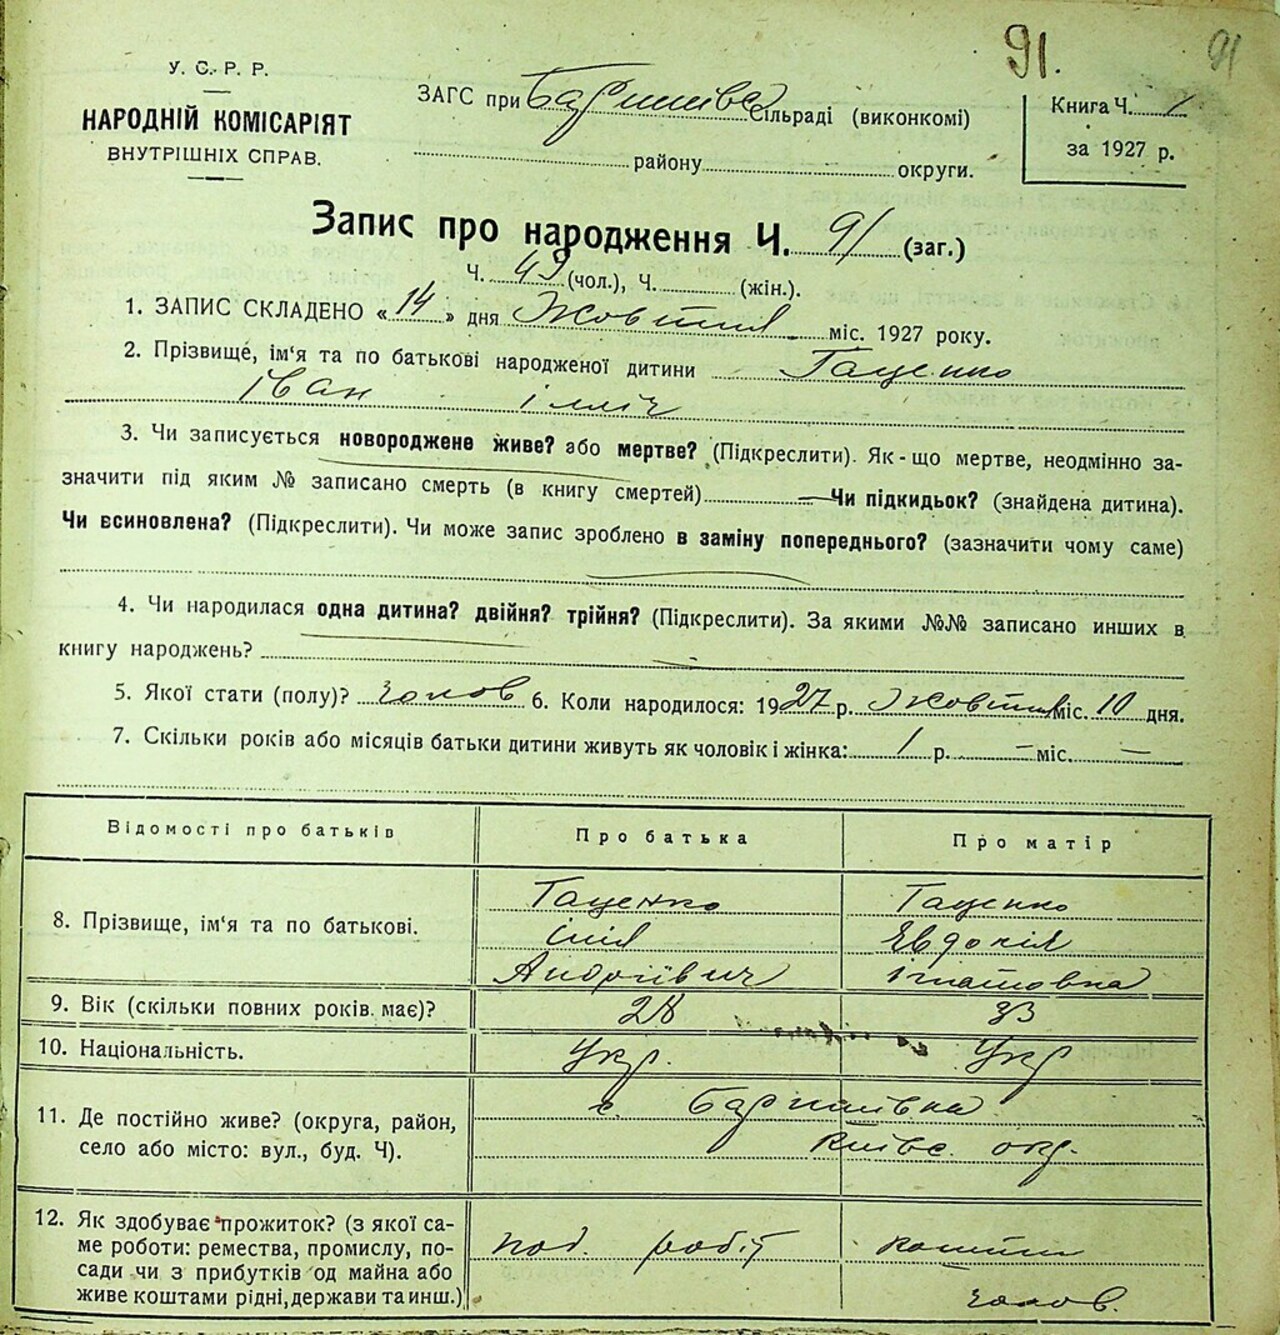 91. 91
У. С. Р. Р.
НАРОДНІЙ КОМІСАРІЯТ
ВНУТРІШНІХ СПРАВ.
ЗАГС при Баришівс Сільраді (виконкомі)
району округи.
Книга Ч. 1
за 1927 р.
Запис про народження Ч. 91 (заг.)
Ч. 49 (чол.), Ч. (жін.).
1. ЗАПИС СКЛАДЕНО «14» дня Жовтня міс. 1927 року.
2. Прізвище, ім'я та по батькові народженої дитини Гаценко
Іван Ілліч
3. Чи записується новороджене живе? або мертве? (Підкреслити). Як-що мертве, неодмінно за-
значити під яким № записано смерть (в книгу смертей) — Чи підкидьок? (знайдена дитина).
Чи всиновлена? (Підкреслити). Чи може запис зроблено в заміну попереднього? (зазначити чому саме)
4. Чи народилася одна дитина? двійня? трійня? (Підкреслити). За якими №№ записано инших в
книгу народжень? —
5. Якої стати (полу)? чолов 6. Коли народилося: 1927 р. Жовтня міс. 10 дня.
7. Скільки років або місяців батьки дитини живуть як чоловік і жінка: 1 р. — міс. —
Відомості про батьків Про батька Про матір
8. Прізвище, ім'я та по батькові. Гаценко Гаценко
Ілія Явдокія
Андріївич Ігнатовна
9. Вік (скільки повних років має)? 28 33
10. Національність. Укр. Укр
11. Де постійно живе? (округа, район,
село або місто: вул., буд. Ч). с. Баришівка
Київс. окр.
12. Як здобуває прожиток? (з якої са-
ме роботи: ремества, промислу, по-
сади чи з прибутків од майна або
живе коштами рідні, держави та инш.) под. робіт кошти
чолов.